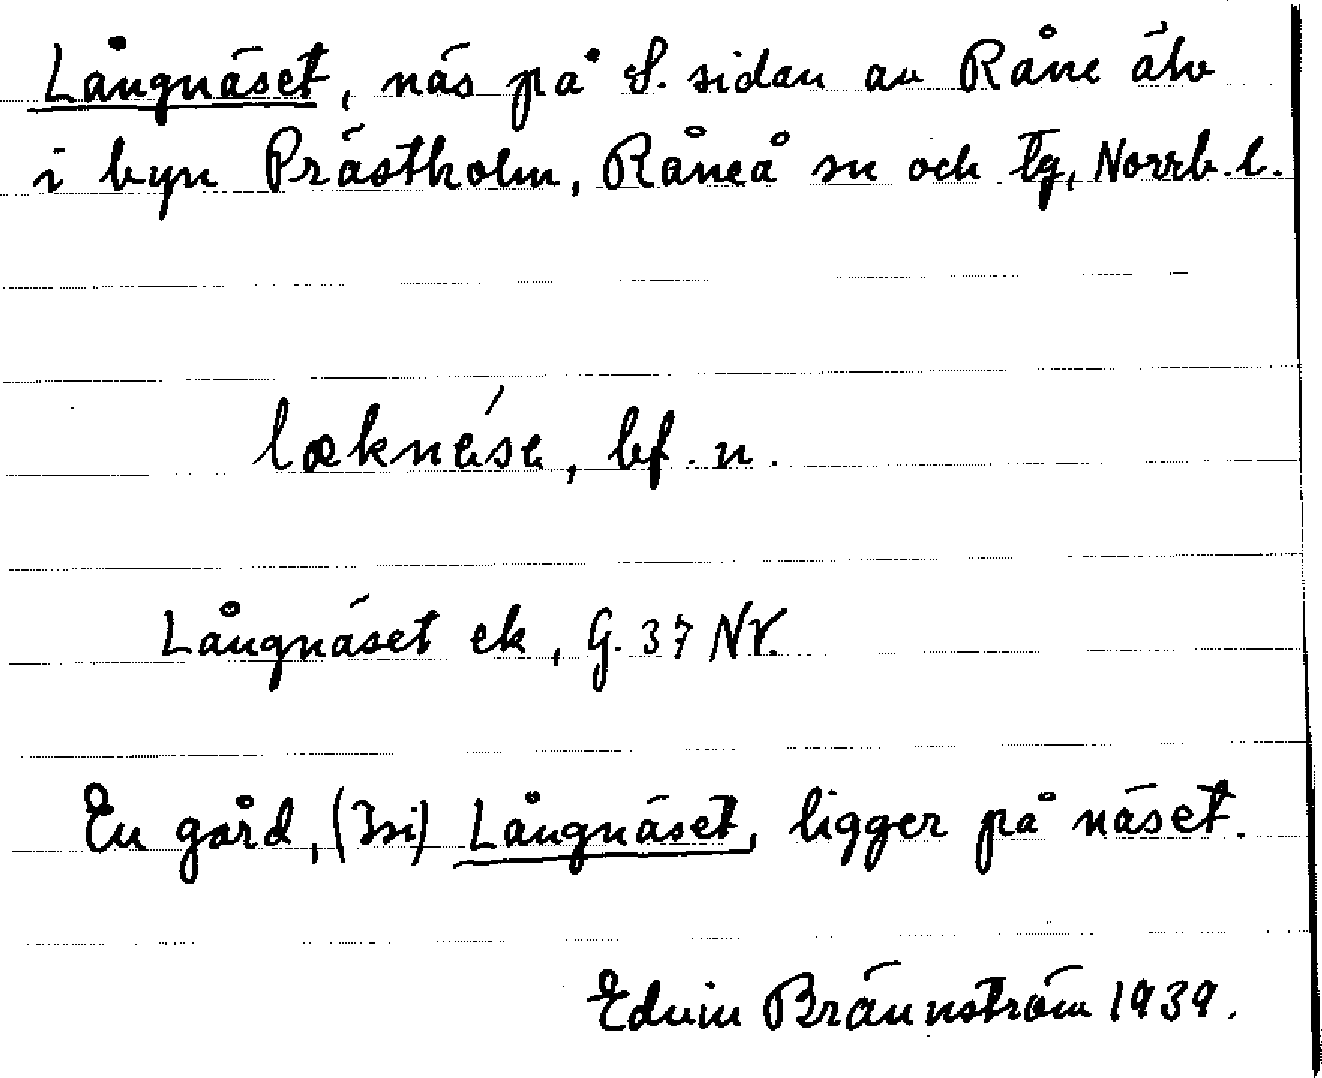 Långnäset, näs på S. sidan av Råne älv
i byn Prästholm, Råneå sn och tg, Norrb. l.
læknése, bf. n.
Långnäset ek, G. 37 NV.
En gård, Långnäset, ligger på näset.
Edvin Brännström 1939.